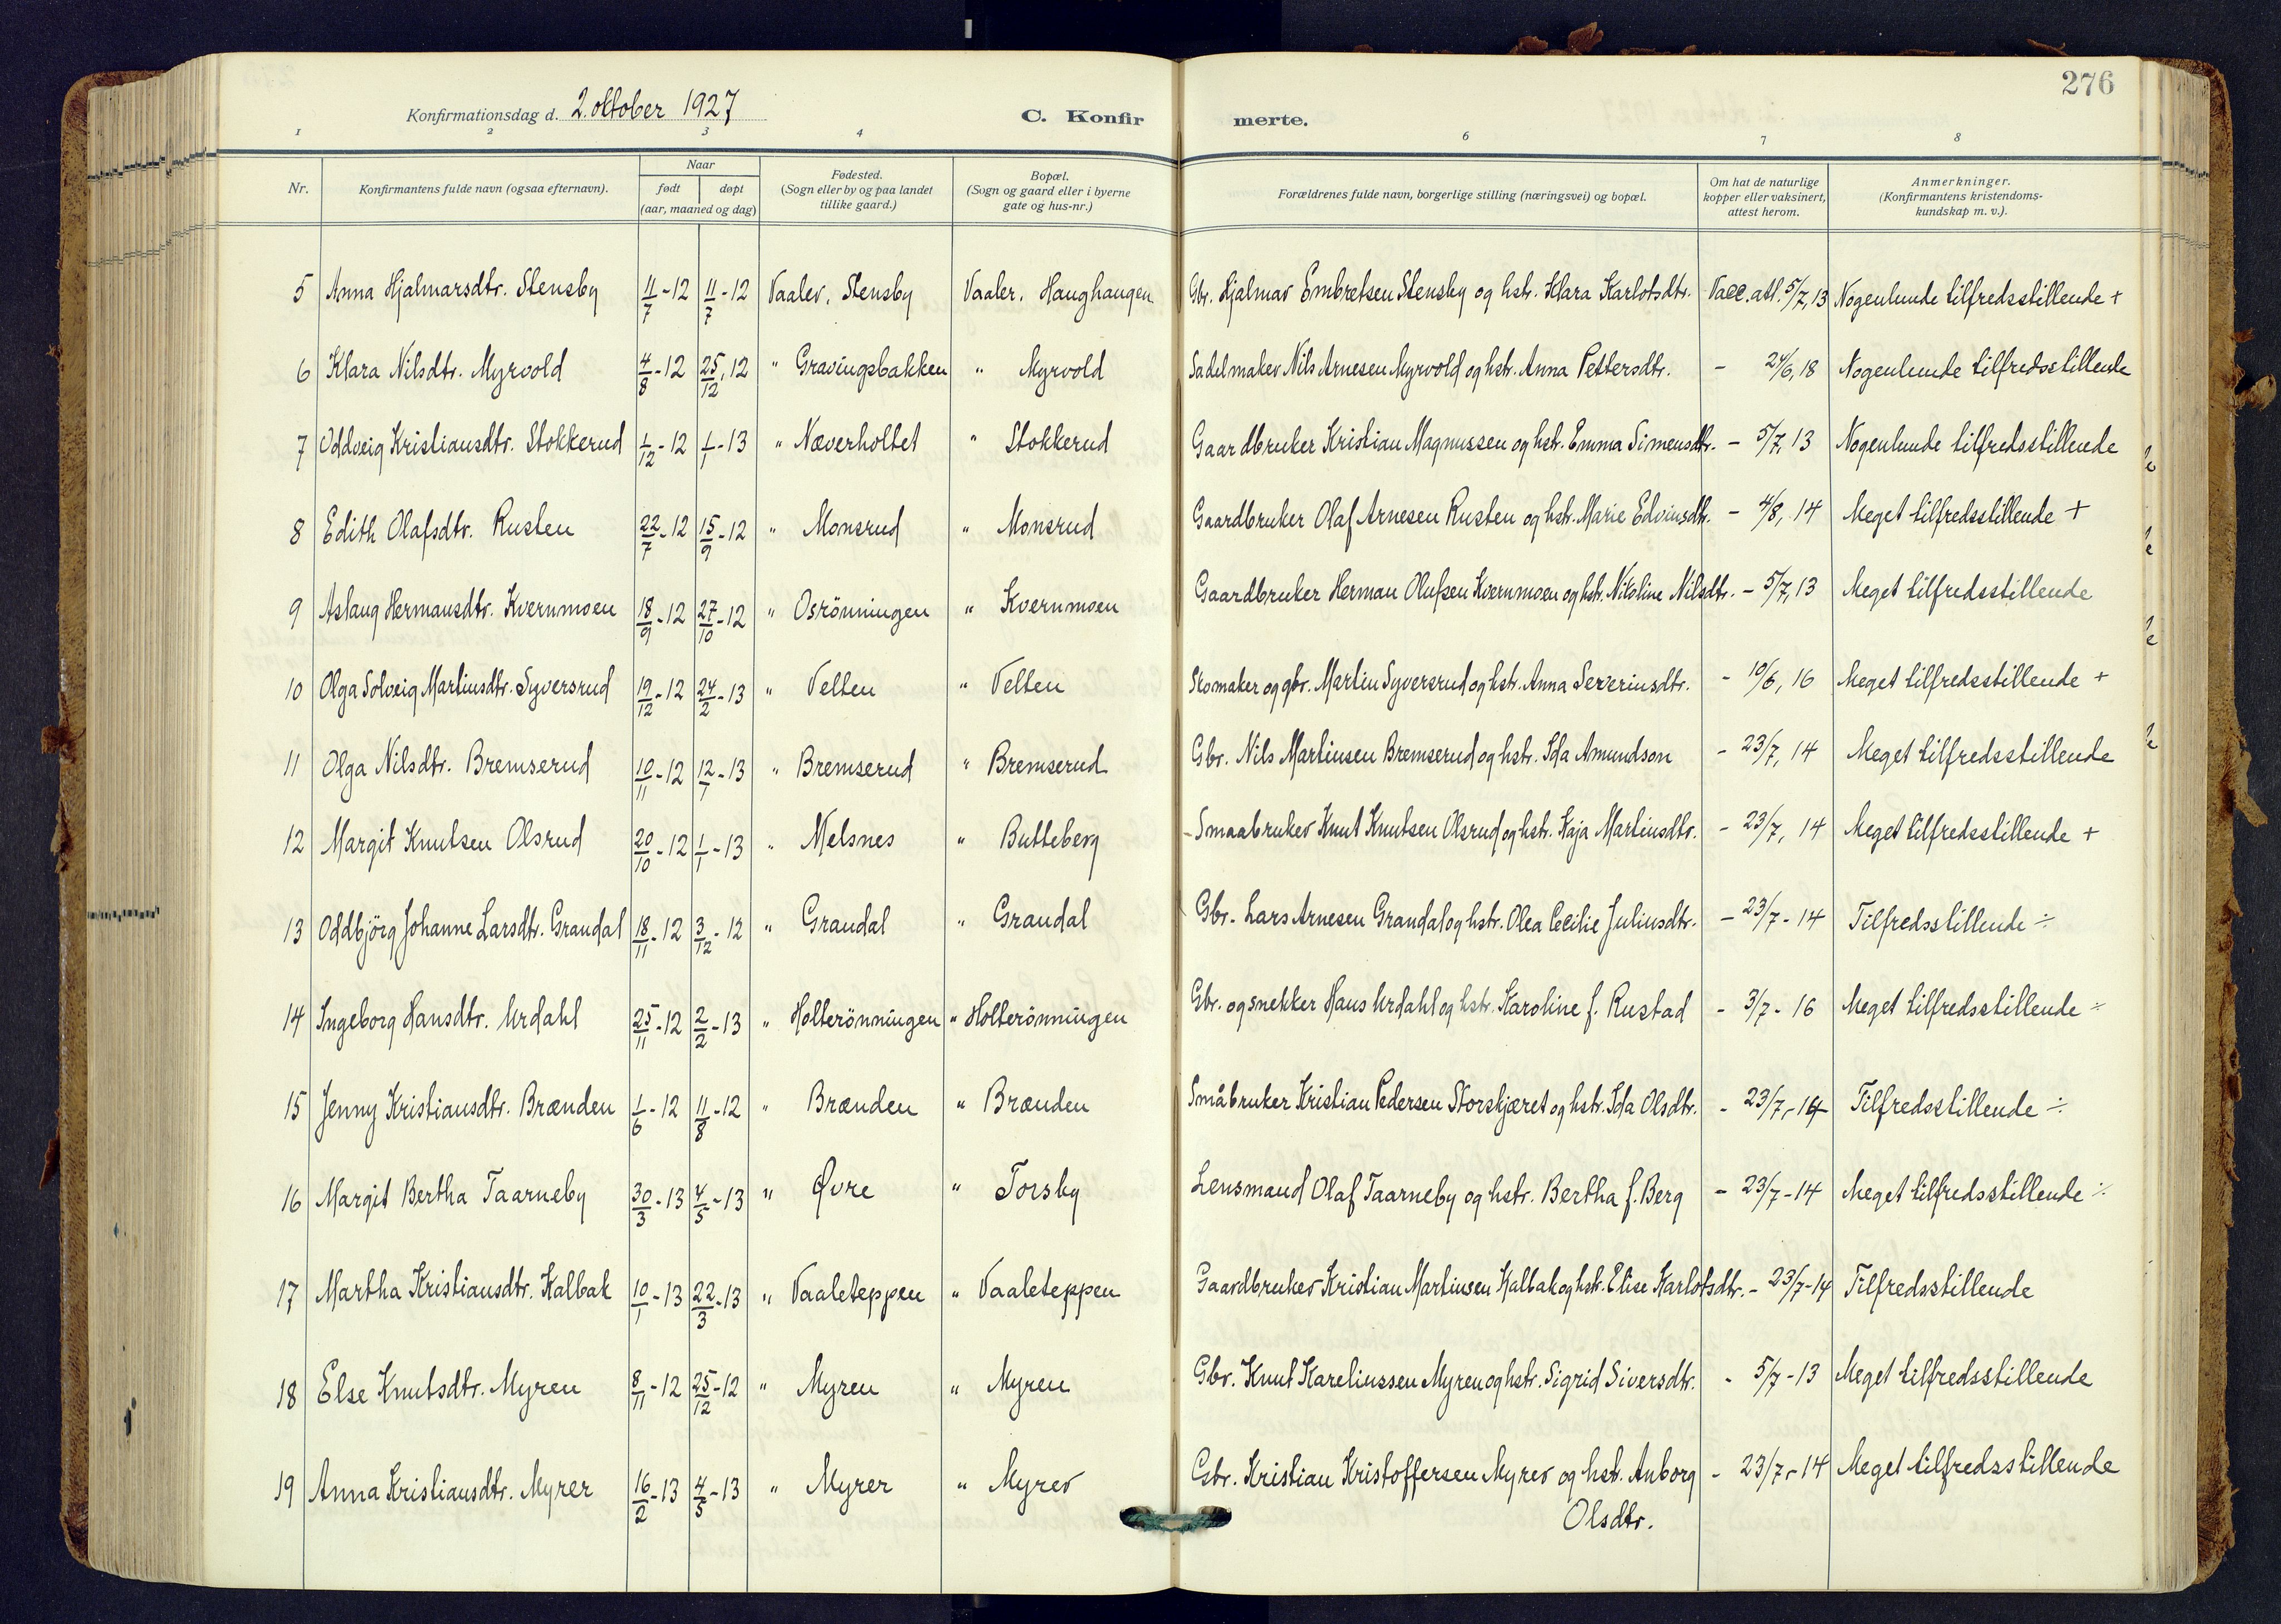 276
Konfirmationsdag d. 2. oktober 1927
C. Konfir merte.
1 2 3 4 6 7 8
Nr.
Konfirmantens fulde navn (ogsaa efternavn).
Naar
født døpt
(aar, maaned og dag)
Fødested.
(Sogn eller by og paa landet
tillike gaard.)
Bopæl.
(Sogn og gaard eller i byerne
gate og hus-nr.)
Forældrenes fulde navn, borgerlige stilling (næringsvei) og bopæl.
Om hat de naturlige
kopper eller vaksinert,
attest herom.
Anmerkninger.
(Konfirmantens kristendoms-
kundskap m. v.).
5 Anna Hjalmarsdtr. Stensby 11/7-12 11/7-12 Vaaler, Stensby Vaaler, Haughaugen Gbr. Hjalmar Embretsen Stensby og hstr. Klara Karlotsdtr. Vacc. att. 5/7, 13 Nogenlunde tilfredsstillende +
6 Klara Nilsdtr. Myrvold 4/8-12 25/12, 12 " Gravingsbakken " Myrvold Sadelmaker Nils Arnesen Myrvold og hstr. Anna Pettersdtr. - 24/6, 18 Nogenlunde tilfredsstillende
7 Oddveig Kristiansdtr. Stokkerud 1/12-12 1/1-13 " Næverholtet " Stokkerud Gaardbruker Kristian Magnussen og hstr. Emma Simensdtr. - 5/7, 13 Nogenlunde tilfredsstillende
8 Edith Olafsdtr. Rusten 22/7-12 15/9-12 " Monsrud " Monsrud Gaardbruker Olaf Arnesen Rusten og hstr. Marie Edvinsdtr. - 4/8, 14 Meget tilfredsstillende +
9 Aslaug Hermansdtr. Kvernmoen 18/9-12 27/10-12 " Osrönningen " Kvernmoen Gaardbruker Herman Olufsen Kvernmoen og hstr. Nikoline Nilsdtr. - 5/7, 13 Meget tilfredsstillende
10 Olga Solveig Martinsdtr. Syversrud 19/12-12 24/2-13 " Velten " Velten Skomaker og gbr. Martin Syversrud og hstr. Anna Severinsdtr. - 10/6, 16 Meget tilfredsstillende +
11 Olga Nilsdtr. Bremserud 10/11-12 12/1-13 " Bremserud " Bremserud Gbr. Nils Martinsen Bremserud og hstr. Ida Amundson - 23/7, 14 Meget tilfredsstillende
12 Margit Knutsen Olsrud 20/10-12 1/1-13 " Melsnes " Butteberg Smaabruker Knut Knutsen Olsrud og hstr. Kaja Martinsdtr. - 23/7, 14 Meget tilfredsstillende +
13 Oddbjörg Johanne Larsdtr. Grandal 18/11-12 3/12-12 " Grandal " Grandal Gbr. Lars Arnesen Grandal og hstr. Olea Cecilie Juliusdtr. - 23/7-14 Tilfredsstillende ÷
14 Ingeborg Hansdtr. Urdahl 25/11-12 2/2-13 " Holterönningen " Holterönningen Gbr. og snekker Hans Urdahl og hstr. Karoline f. Rustad - 3/7-16 Meget tilfredsstillende ÷
15 Jenny Kristiansdtr. Brænden 1/6-12 11/8-12 " Brænden " Brænden Småbruker Kristian Pedersen Storskjæret og hstr. Ida Olsdtr. - 23/7-14 Tilfredsstillende ÷
16 Margit Bertha Taarneby 30/3-13 4/5-13 " Øvre " Torsby Lensmand Olaf Taarneby og hstr. Bertha f. Berg - 23/7-14 Meget tilfredsstillende ÷
17 Martha Kristiansdtr. Kalbak 10/1-13 22/3-13 " Vaaleteppen " Vaaleteppen Gaardbruker Kristian Martinsen Kalbak og hstr. Elise Karlotsdtr. - 23/7-14 Tilfredsstillende
18 Else Knutsdtr. Myren 8/11-12 25/12-12 " Myren " Myren Gbr. Knut Kareliussen Myren og hstr. Sigrid Siversdtr. - 5/7-13 Meget tilfredsstillende
19 Anna Kristiansdtr. Myrer 16/2-13 4/5-13 " Myrer " Myrer Gbr. Kristian Kristoffersen Myrer og hstr. Anborg - 23/7-14 Meget tilfredsstillende
Olsdtr.